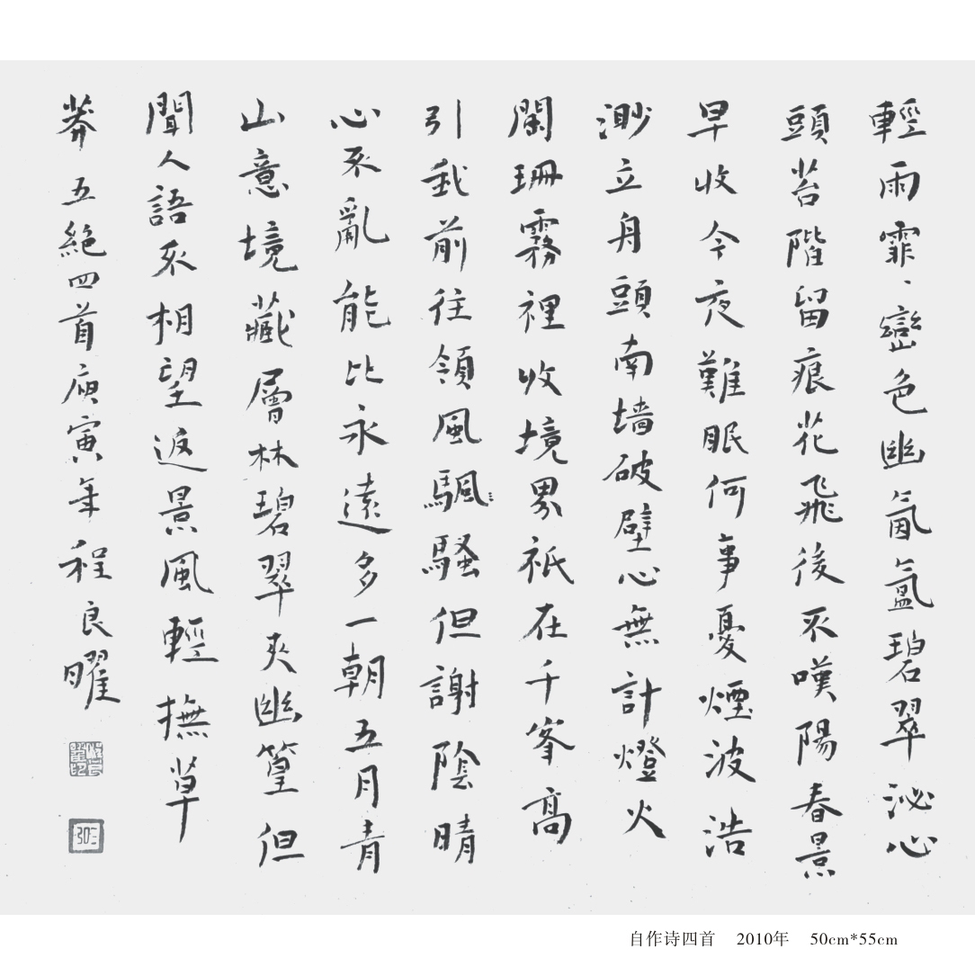 輕雨霏、巒色幽氤氳碧翠沁心
頭苔階留痕花飛後不嘆陽春景
早收今夜難眠何事憂煙波浩
渺立舟頭南墙破壁心無計燈火
闌珊霧裡收境界祇在千峯高
引我前往領風颿騷但謝陰晴
心不亂能比永遠多一朝五月青
山意境藏層林碧翠夾幽篁但
聞人語不相望返景風輕撫草
莽 五絕四首庚寅年程良曜
自作诗四首 2010年 50cm*55cm